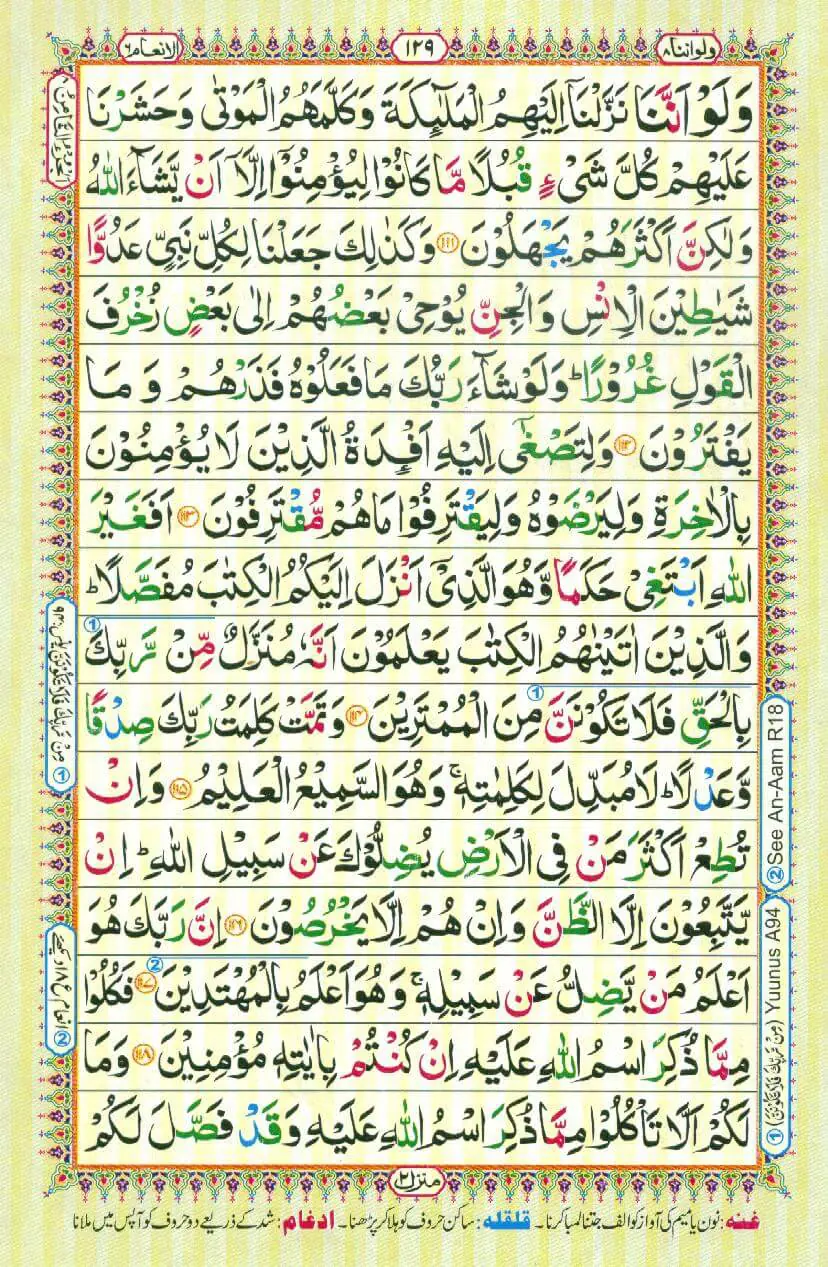 ولواننا۸
۱۲۹
الانعام۶
وَلَوْ اَنَّنَا نَزَّلْنَاۤ اِلَيْهِمُ الْمَلٰٓئِكَةَ وَكَلَّمَهُمُ الْمَوْتٰى وَحَشَرْنَا
عَلَيْهِمْ كُلَّ شَىْءٍ قُبُلًا مَّا كَانُوْا لِيُؤْمِنُوْۤا اِلَّاۤ اَنْ يَّشَآءَ اللّٰهُ
وَلٰكِنَّ اَكْثَرَهُمْ يَجْهَلُوْنَ ﴿۱۱۱﴾ وَكَذٰلِكَ جَعَلْنَا لِكُلِّ نَبِىٍّ عَدُوًّا
شَيٰطِيْنَ الْاِنْسِ وَالْجِنِّ يُوْحِىْ بَعْضُهُمْ اِلٰى بَعْضٍ زُخْرُفَ
الْقَوْلِ غُرُوْرًا ؕ وَلَوْ شَآءَ رَبُّكَ مَا فَعَلُوْهُ فَذَرْهُمْ وَ مَا
يَفْتَرُوْنَ ﴿۱۱۲﴾ وَلِتَصْغٰۤى اِلَيْهِ اَفْـِٕدَةُ الَّذِيْنَ لَا يُؤْمِنُوْنَ
بِالْاٰخِرَةِ وَلِيَرْضَوْهُ وَلِيَقْتَرِفُوْا مَا هُمْ مُّقْتَرِفُوْنَ ﴿۱۱۳﴾ اَفَغَيْرَ
اللّٰهِ اَبْتَغِىْ حَكَمًا وَّهُوَ الَّذِىْۤ اَنْزَلَ اِلَيْكُمُ الْكِتٰبَ مُفَصَّلًا ؕ
وَالَّذِيْنَ اٰتَيْنٰهُمُ الْكِتٰبَ يَعْلَمُوْنَ اَنَّهٗ مُنَزَّلٌ مِّنْ رَّبِّكَ
بِالْحَقِّ فَلَا تَكُوْنَنَّ مِنَ الْمُمْتَرِيْنَ ﴿۱۱۴﴾ وَتَمَّتْ كَلِمَتُ رَبِّكَ صِدْقًا
وَّعَدْلًا ؕ لَا مُبَدِّلَ لِكَلِمٰتِهٖ ۚ وَهُوَ السَّمِيْعُ الْعَلِيْمُ ﴿۱۱۵﴾ وَاِنْ
تُطِعْ اَكْثَرَ مَنْ فِى الْاَرْضِ يُضِلُّوْكَ عَنْ سَبِيْلِ اللّٰهِ ؕ اِنْ
يَّتَّبِعُوْنَ اِلَّا الظَّنَّ وَاِنْ هُمْ اِلَّا يَخْرُصُوْنَ ﴿۱۱۶﴾ اِنَّ رَبَّكَ هُوَ
اَعْلَمُ مَنْ يَّضِلُّ عَنْ سَبِيْلِهٖ ۚ وَهُوَ اَعْلَمُ بِالْمُهْتَدِيْنَ ﴿۱۱۷﴾ فَكُلُوْا
مِمَّا ذُكِرَ اسْمُ اللّٰهِ عَلَيْهِ اِنْ كُنْتُمْ بِاٰيٰتِهٖ مُؤْمِنِيْنَ ﴿۱۱۸﴾ وَمَا
لَكُمْ اَلَّا تَاْكُلُوْا مِمَّا ذُكِرَ اسْمُ اللّٰهِ عَلَيْهِ وَقَدْ فَصَّلَ لَكُمْ
② See An-Aam R18
① Yuunus A94
منزل۲
غنه: نون یا میم کی آواز کو الف جتنا لمبا کرنا۔ قلقله: ساکن حروف کو ہلا کر پڑھنا۔ ادغام: شد کے ذریعے دو حروف کو آپس میں ملانا